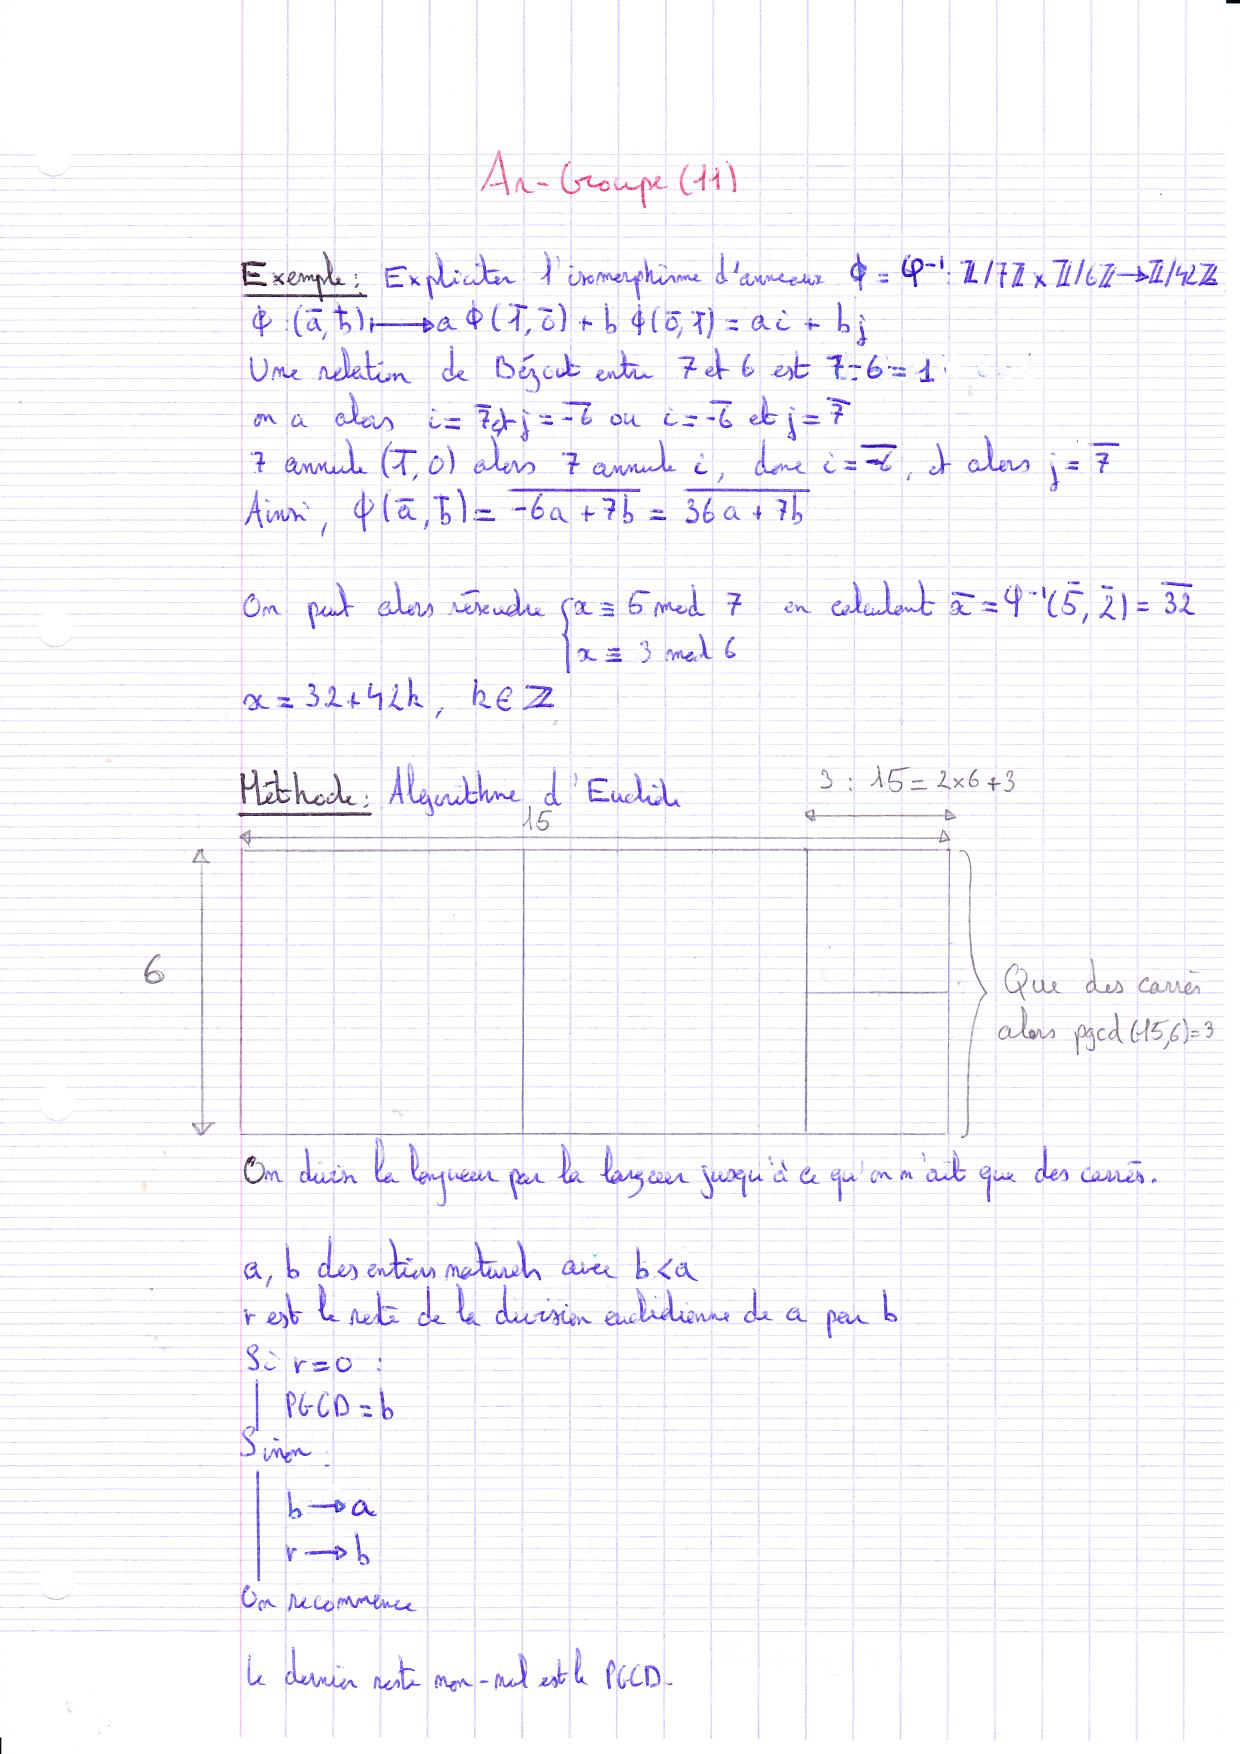 An-Groupe (11)
Exemple: Expliciter l'isomorphisme d'anneaux ϕ = φ⁻¹: ℤ/7ℤ × ℤ/6ℤ → ℤ/42ℤ
ϕ : (a̅, b̅) ⟼ a ϕ(1̅, 0̅) + b ϕ(0̅, 1̅) = ai + bj
Une relation de Bézout entre 7 et 6 est 7-6=1
on a alors i = 7̅ et j = \overline{-6} ou i = \overline{-6} et j = 7̅
7 annule (1̅, 0) alors 7 annule i, donc i = \overline{-6}, et alors j = 7̅
Ainsi, ϕ(a̅, b̅) = \overline{-6a + 7b} = \overline{36a + 7b}
On peut alors résoudre { x ≡ 5 mod 7 en calculant x̅ = φ⁻¹(5̅, 2̅) = \overline{32}
x ≡ 3 mod 6
x = 32 + 42k, k ∈ ℤ
Méthode: Algorithme d'Euclide
3 : 15 = 2×6+3
15
6
Que des carrés
alors pgcd (15,6)=3
On divise la longueur par la largeur jusqu'à ce qu'on n'ait que des carrés.
a, b des entiers naturels avec b<a
r est le reste de la division euclidienne de a par b
Si r=0 :
PGCD = b
Sinon :
b → a
r → b
On recommence
Le dernier reste non-nul est le PGCD.